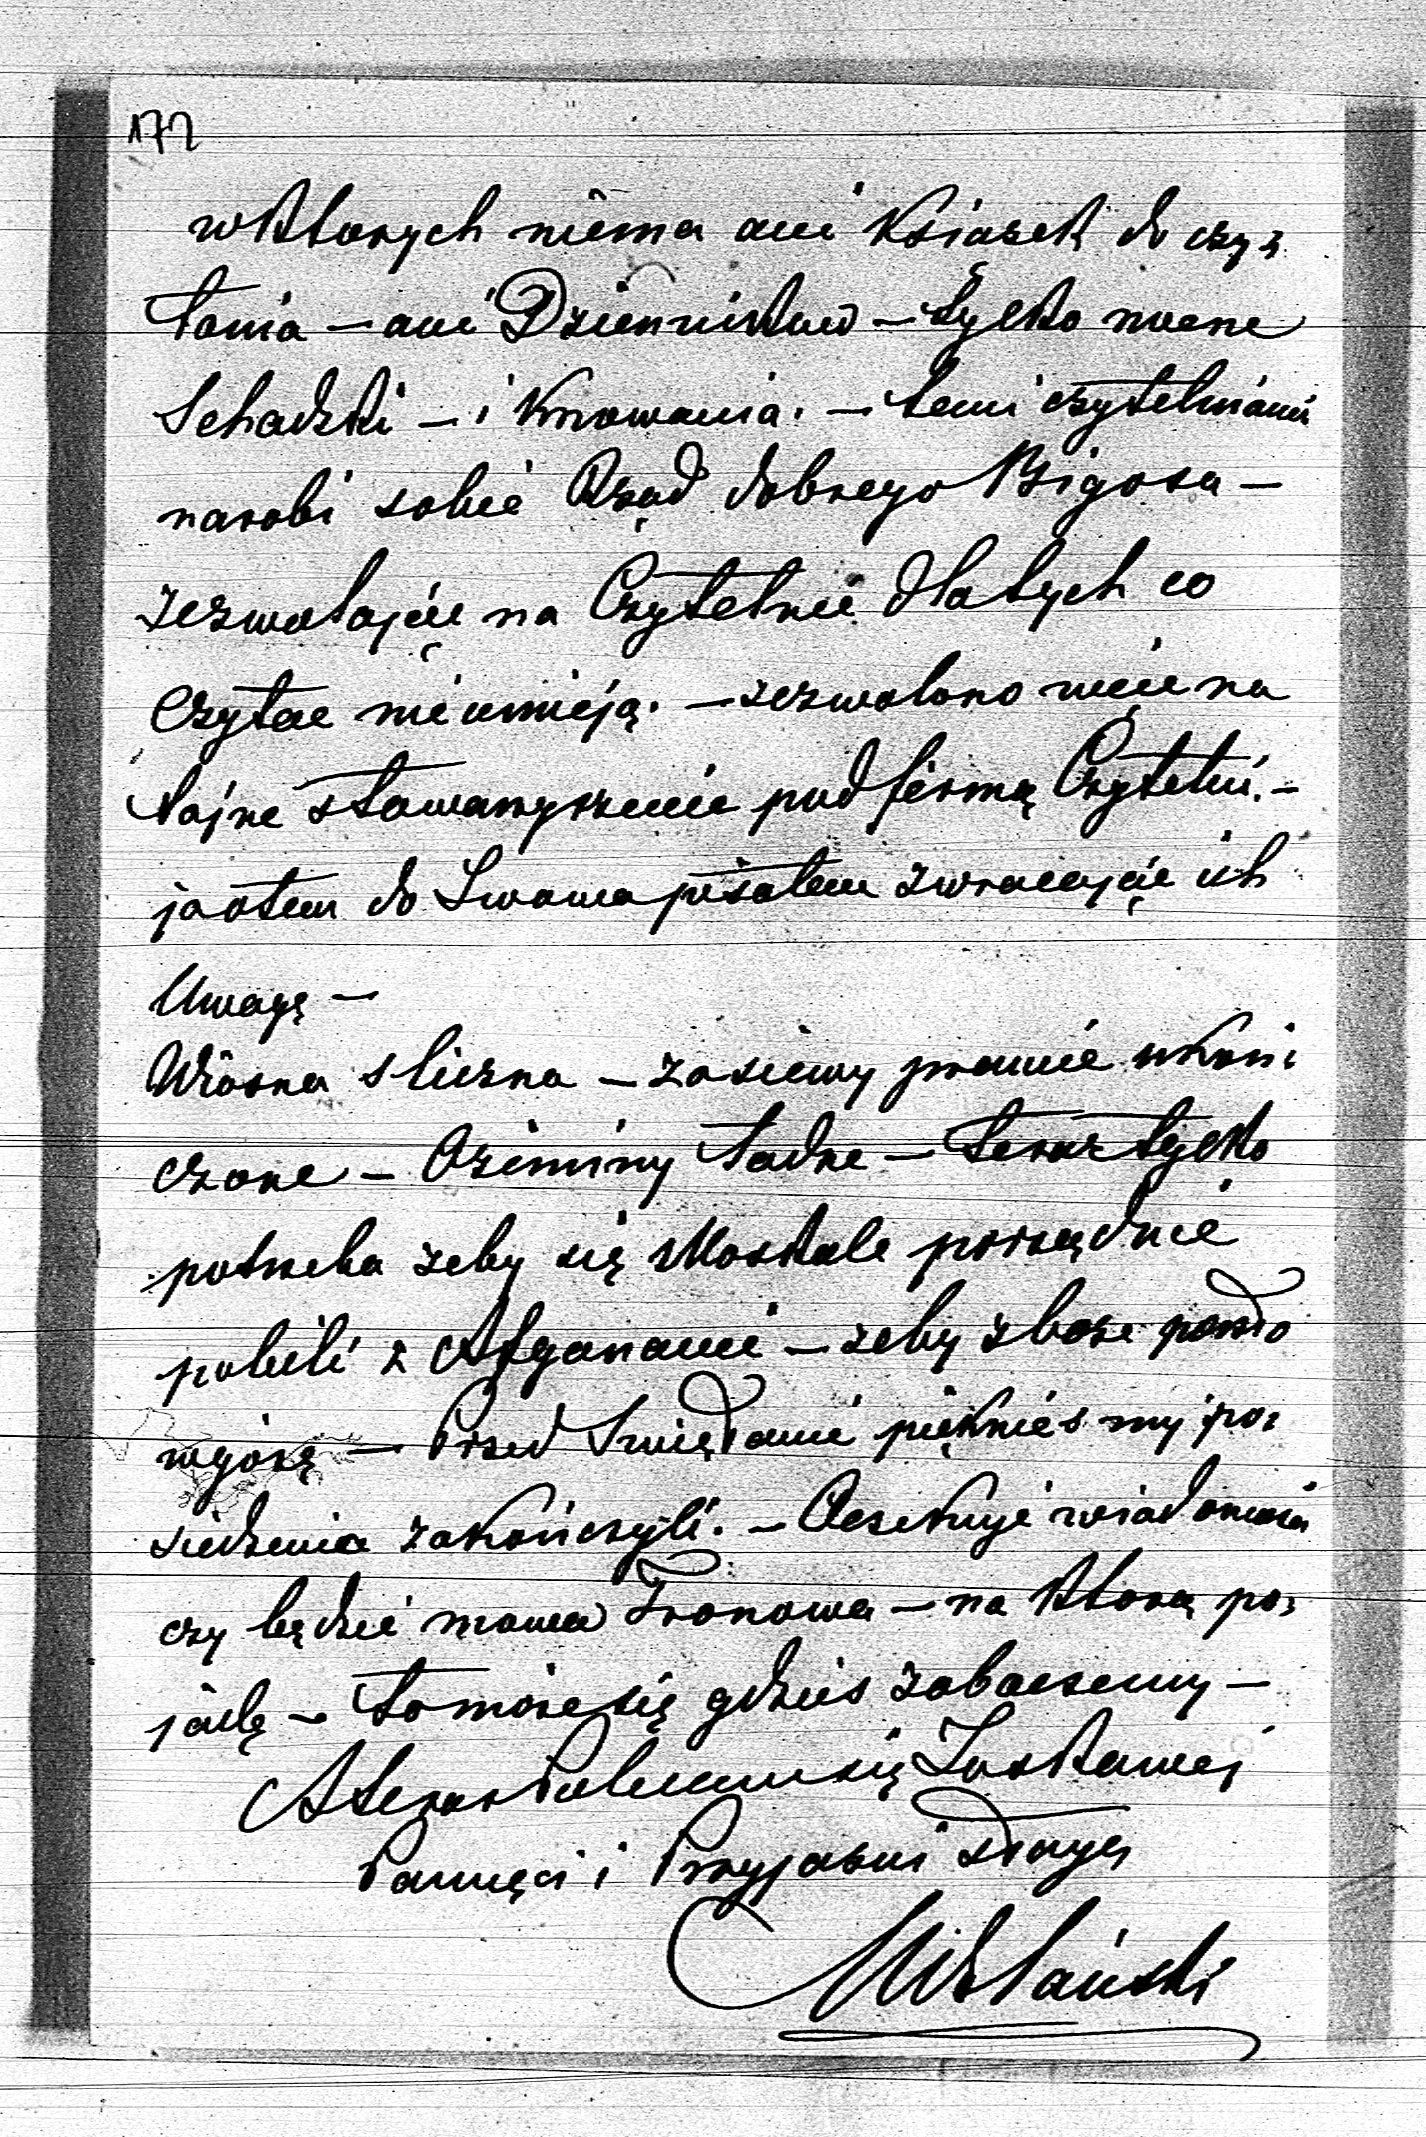 172
w których niema ani Książek do czy=
tania — ani Dzienników — tylko nocne
Schadzki — i Knowania. — temi czytelniami
narobi sobie Rząd dobrego Bigosu —
zezwalając na Czytelnie dla tych co
czytac nie umieją. — zezwolono więc na
tajne stowarzyszenie pod firmą Czytelni. —
ja o tem do Lwowa pisałem zwracając ich
Uwagę —
Wiosna sliczna — zasiewy prawie ukoń=
czone — Oziminy ładne — teraz tylko
potrzeba zeby się Moskale porządnie
pobili z Afganami — zeby zboze poszło
wgórę — Przed Swiętami pięknie smy po=
siedzenia zakończyli. — Oczekuję wiadomosci
czy będzie mowa Tronowa — na którą po=
jadę — to moze się gdzies zobaczemy —
A teraz Polecam się Łaskawej
Pamięci i Przyjazni sługa